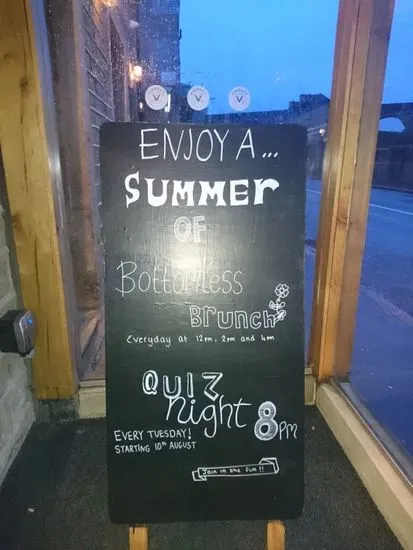 ENJOY A...
SUMMER
OF
Bottomless
Brunch
Everyday at 12pm, 2pm and 4pm
QUIZ
night 8pm
EVERY TUESDAY!
STARTING 10th AUGUST
Join in the fun!!